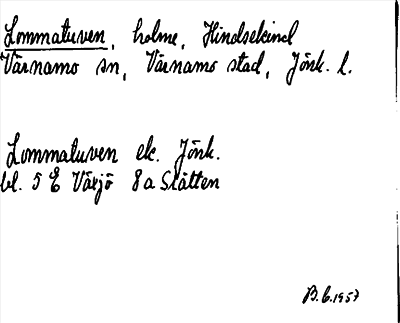 Lommatuven, holme, Hindsekind
Värnamo sn, Värnamo stad, Jönk. l.
Lommatuven ek. Jönk.
bl. 5 E Växjö 8 a Slätten
B.L. 1957